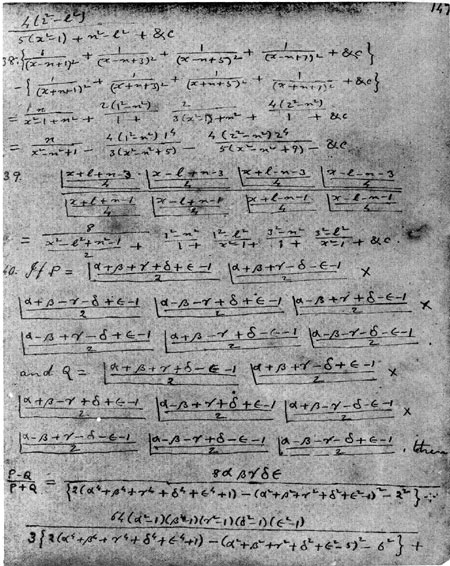 147
4(2²-l²)/5(x²-1)+n²-l² + &c
38. {1/(x-n+1)² + 1/(x-n+3)² + 1/(x-n+5)² + 1/(x-n+7)² + &c}
-{1/(x+n+1)² + 1/(x+n+3)² + 1/(x+n+5)² + 1/(x+n+7)² + &c}
= n/x²-1+n² + 2(1²-n²)/1 + 2/3(x²-1)+n² + 4(2²-n²)/1 + &c
= n/x²-n²+1 - 4(1²-n²)1⁴/3(x²-n²+5) - 4(2²-n²)2⁴/5(x²-n²+9) - &c.
39. |x+l+n-3/4 · |x-l+n-3/4 |x+l-n-3/4 |x-l-n-3/4
|x+l+n-1/4 |x-l+n-1/4 |x+l-n-1/4 |x-l-n-1/4
= 8/x²-l²+n²-1/2 + 1²-n²/1 + 1²-l²/x²-1 + 3²-n²/1 + 3²-l²/x²-1 + &c.
40. If P = |α+β+γ+δ+ε-1/2 |α+β+γ-δ-ε-1/2 ×
|α+β-γ-δ+ε-1/2 |α-β-γ+δ+ε-1/2 |α-β+γ+δ-ε-1/2 ×
|α-β+γ-δ+ε-1/2 |α+β-γ+δ-ε-1/2 |α-β-γ-δ-ε-1/2 .
and Q = |α+β+γ+δ-ε-1/2 |α+β+γ-δ+ε-1/2 ×
|α+β-γ+δ+ε-1/2 |α-β+γ+δ+ε-1/2 |α+β-γ-δ-ε-1/2 ×
|α-β+γ-δ-ε-1/2 |α-β-γ+δ-ε-1/2 |α-β-γ-δ+ε-1/2 . then
P-Q/P+Q = 8αβγδε/{2(α⁴+β⁴+γ⁴+δ⁴+ε⁴+1) - (α²+β²+γ²+δ²+ε²-1)² - 2²} +
64(α²-1)(β²-1)(γ²-1)(δ²-1)(ε²-1)/3{2(α⁴+β⁴+γ⁴+δ⁴+ε⁴+1) - (α²+β²+γ²+δ²+ε²-5)² - 6²} +